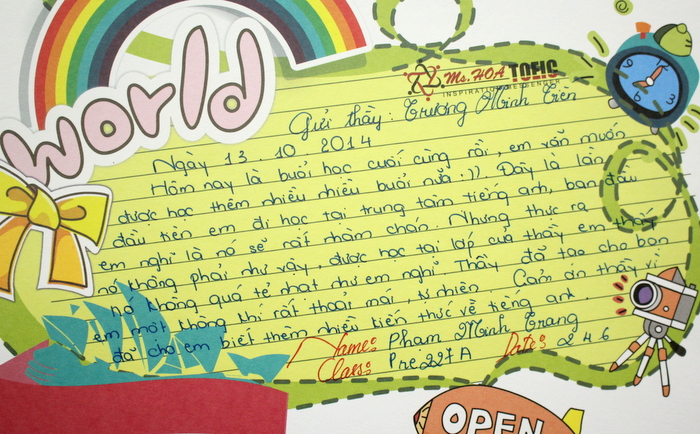 world
Ms. HOA TOEIC
INSPIRATION MESSENGER
Gửi thầy: Trương Minh Trên
Ngày 13.10.2014
Hôm nay là buổi học cuối cùng rồi, em vẫn muốn
được học thêm nhiều nhiều buổi nữa :)) Đây là lần
đầu tiên em đi học tại trung tâm tiếng anh, ban đầu
em nghĩ là nó sẽ rất nhàm chán. Nhưng thực ra
nó không phải như vậy, được học tại lớp của thầy em thấy
nó không quá tẻ nhạt như em nghĩ. Thầy đã tạo cho bọn
em một không khí rất thoải mái, tự nhiên. Cảm ơn thầy vì
đã cho em biết thêm nhiều kiến thức về tiếng anh.
Name: Phạm Minh Trang
Class: Pre227A Date: 246
OPEN